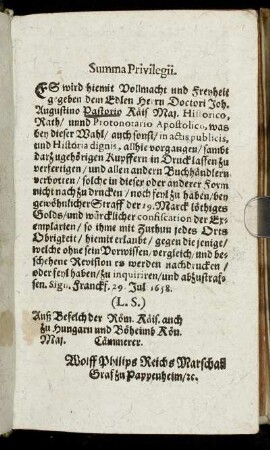 Summa Privilegii.
ES wird hiemit Vollmacht und Freyheit
gegeben dem Edlen Herrn Doctori Joh.
Augustino Pastorio Käis Maj. Historico,
Rath/ unnd Protonotario Apostolico, was
bey dieser Wahl/ auch sonst/ in actis publicis,
und Historia dignis, allhie vorgangen/ sambt
darzu gehörigen Kupffern in Druck lassen zu
verfertigen/ und allen andern Buchhändlern
verbotten/ solche in dieser oder anderer Form
nicht nach zu drucken/ noch feyl zu haben/ bey
gewöhnlicher Straff der 19. Marck löthiges
Golds/ und würcklicher confiscation der Ex-
emplarien/ so ihne mit Zuthun jedes Orts
Obrigkeit/ hiemit erlaubt/ gegen die jenige/
welche ohne sein Vorwissen/ vergleich/ und be-
schehene Revision es werden nachdrucken/
oder feyl haben/ zu inquiriren/ und abzustraf-
fen. Sign. Franckf. 29. Jul 1658.
(L. S.)
Auß Befelch der Röm. Käis. auch
zu Hungarn und Böheimb Kön.
Maj. Cämmerer.
Wolff Philips Reichs Marschall
Graf zu Pappenheim/ ꝛc.